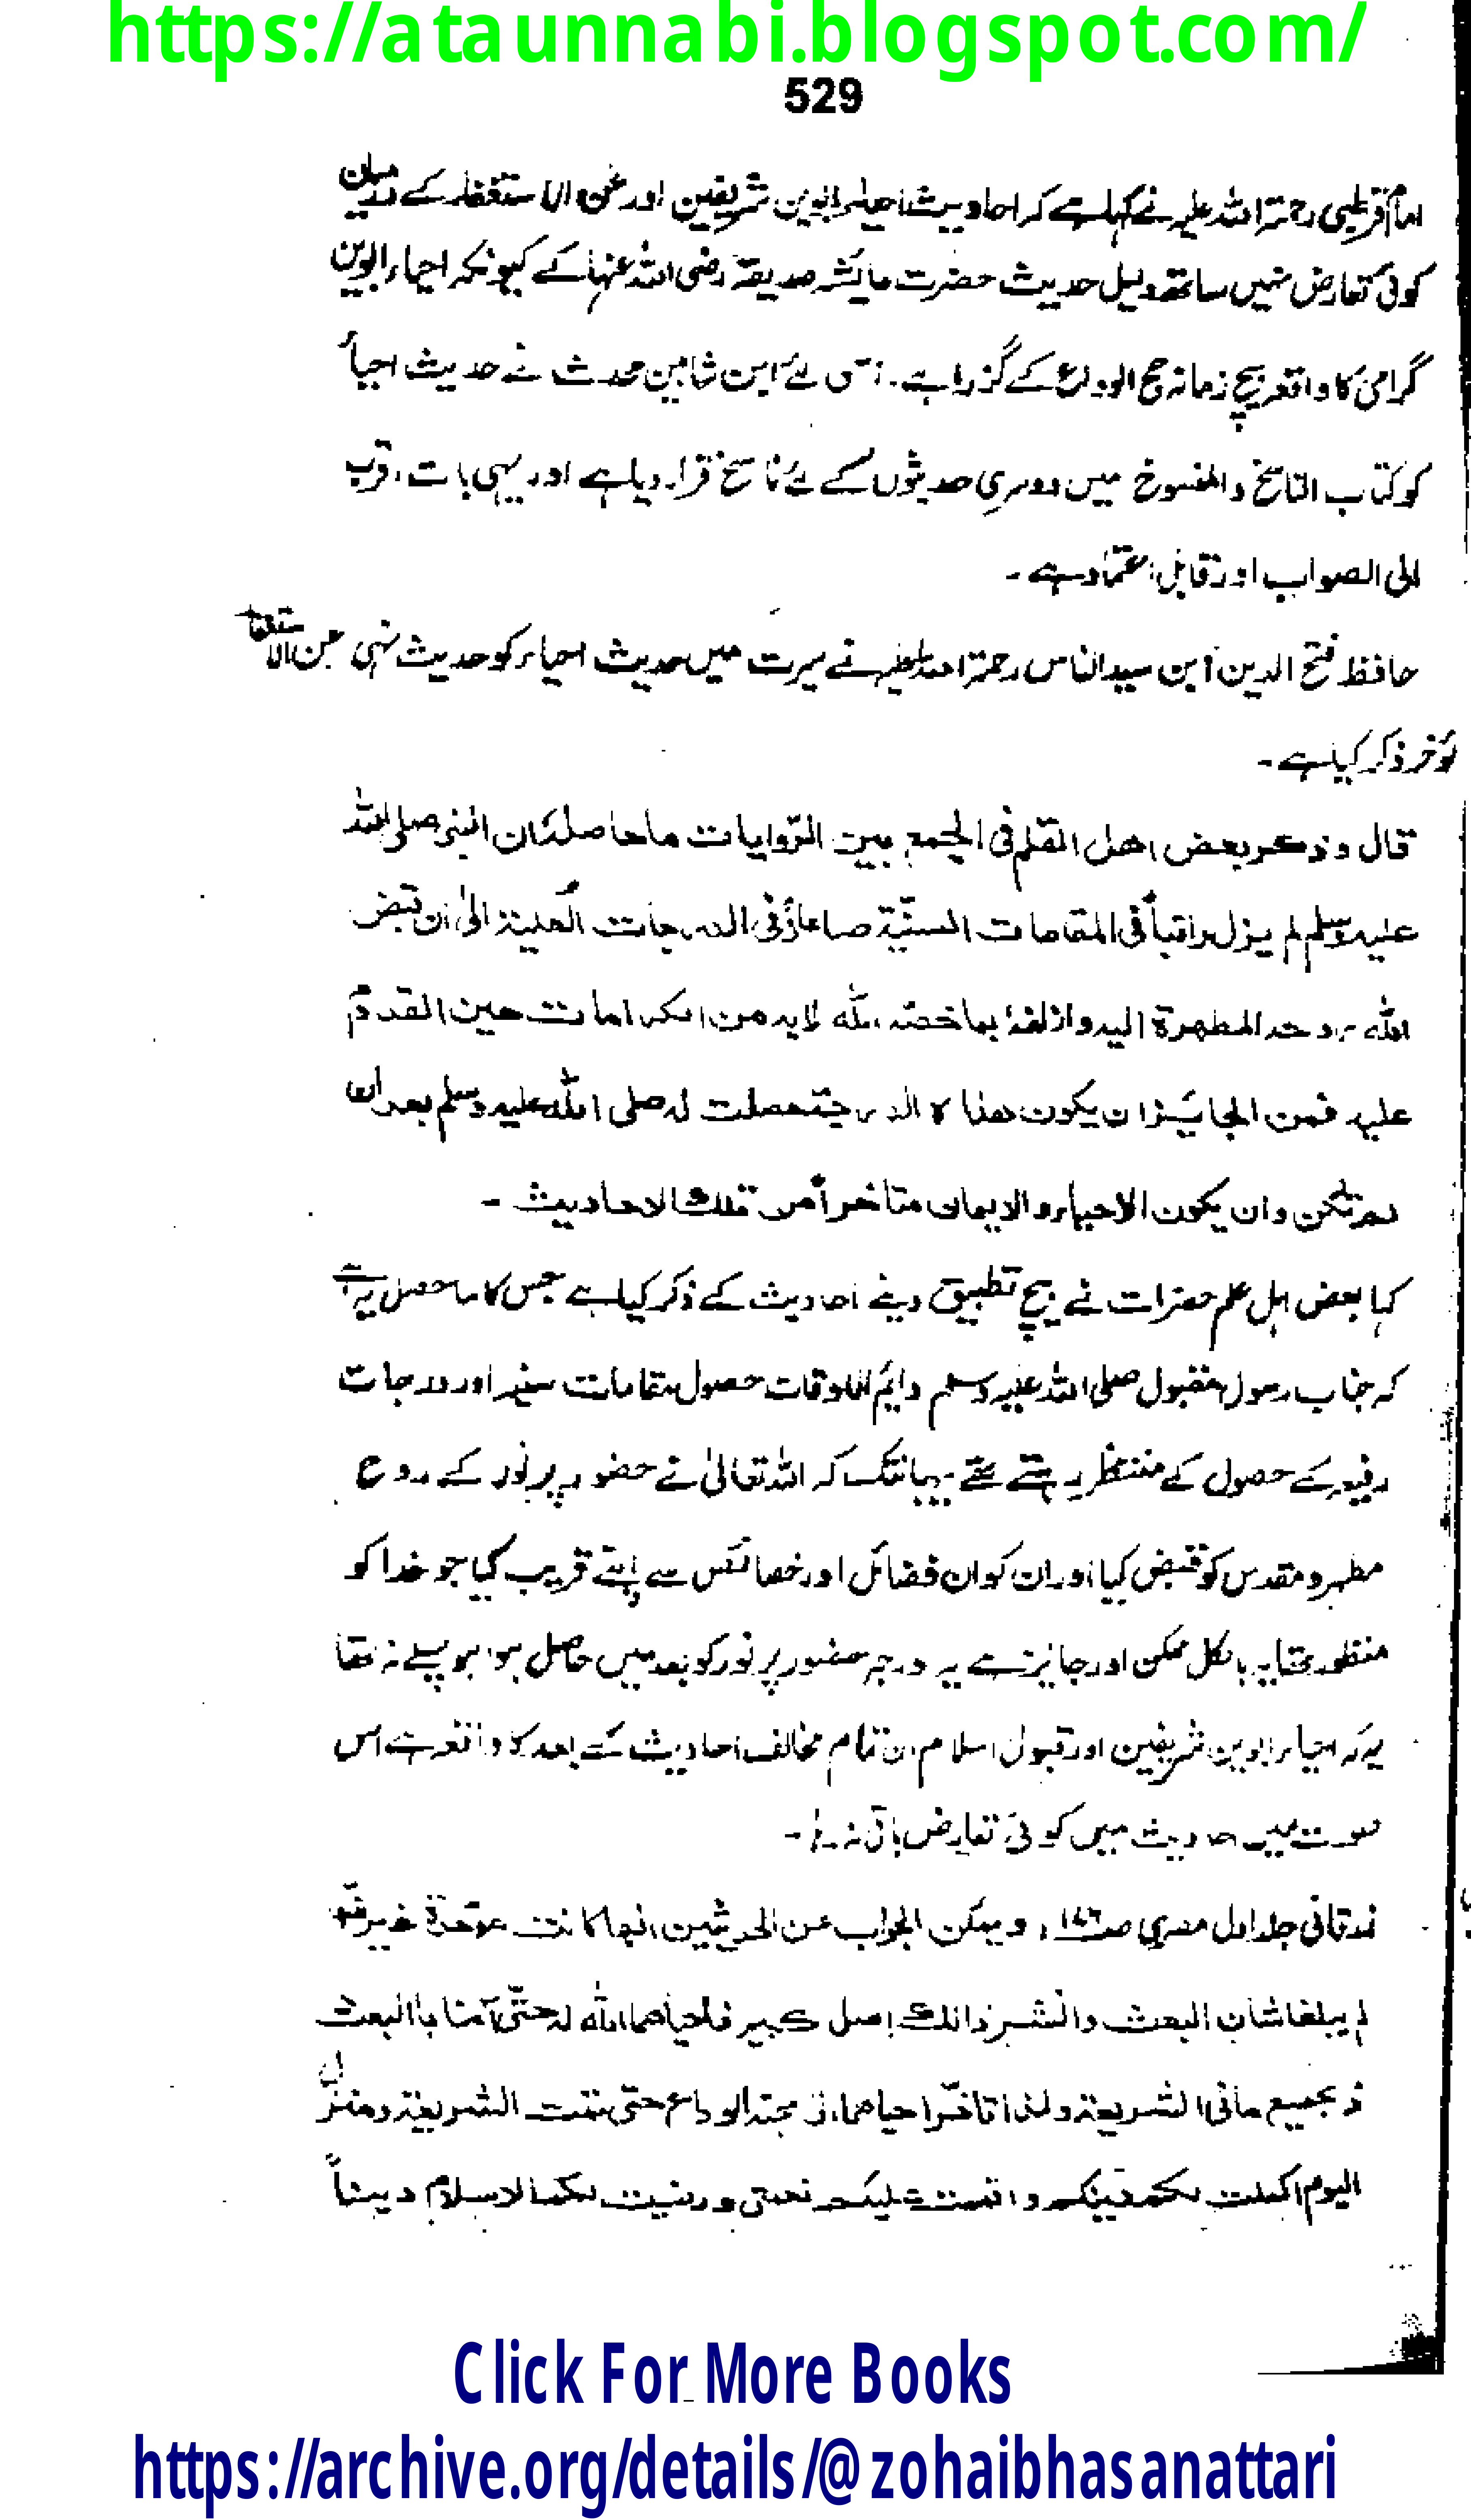 https://ataunnabi.blogspot.com/
529
امام قرطبی رحمۃ اللہ علیہ نے کہا ہے کہ احادیث احیاء ابوین شریفین اور عن الاستغفار کے درمیان
کوئی تعارض نہیں ساتھ دلیل حدیث حضرت عائشہ صدیقہ رضی اللہ عنہا کے کیونکہ احیاء ابوین
گرامی کا واقعہ بیچ زمانہ حج الوداع کے گزرا ہے۔ اسی لئے ابن شاہین محدث نے حدیث احیاء
کو کتاب الناسخ والمنسوخ میں دوسری حدیثوں کے لئے ناسخ قرار دیا ہے اور یہی بات اقرب
الی الصواب اور قابل اعتماد ہے۔
حافظ فتح الدین ابن سیدالناس رحمۃ اللہ علیہ نے سیرت میں حدیث احیاء کو حدیث نہی عن الاستغفار
مؤخر ذکر کیا ہے۔
قال وذکر بعض اهل العلم فی الجمع بین الروایات ماحاصله ان النبی صلی الله
علیه وسلم لم یزل راقیاً فی المقامات السنیّة صاعداً فی الدرجات العلیة الی ان قبض
الله روحه المطهرة الیه وازلفه بما خصه الله لدیه من الکرامات حین القدوم
علیه فمن الجایز ان یکون هذا ہ الدرجة حصلت له صلی الله علیه وسلم بعد ان
لم تکن وان یکون الاحیاء والایمان متاخراً من تلك الاحادیث ۔
کہا بعض اہل علم حضرات نے بیچ تطبیق دینے احادیث کے ذکر کیا ہے جس کا ماحصل یہ ہے
کہ جناب رسول مقبول صلی اللہ علیہ وسلم دائم الاوقات حصول مقامات سنیہ اور درجات
رفیعہ کے حصول کے منتظر رہتے تھے یہانتک کہ اللہ تعالیٰ نے حضور پر نور کے روح
مطہر و مقدس کو قبض کیا اور ان کو ان فضائل اور خصائص سے اپنے قریب کیا جو خدا کو
منظور تھا یہ بالکل ممکن اور جایز ہے یہ درجہ حضور پر نور کو بعد میں حاصل ہوا ہو پہلے نہ تھا
یہ کہ احیاء ابوین شریفین اور قبول اسلام ان تمام مخالف احادیث کے بعد کا واقعہ ہے اس
صورت میں احادیث میں کوئی تعارض باقی نہ رہا۔
زرقانی جلد اول مصری ص۱۷۶، ویمکن الجواب عن الحدیثین انها کانت موحدة غیر
لم یبلغها شان البعث والنشر وذالك اصل کبیر فاحیاهما الله له حتّی آمنا باالبعث
وبجمیع مافی الشریعة ولذا تاخّر احیاهما، ز حجة الوداع حتی تمت الشریعة ونزل
الیوم اکملت لکم دینکم واتممت علیکم نعمتی ورضیت لکم الاسلام دیناً
Click For More Books
https://archive.org/details/@zohaibhasanattari